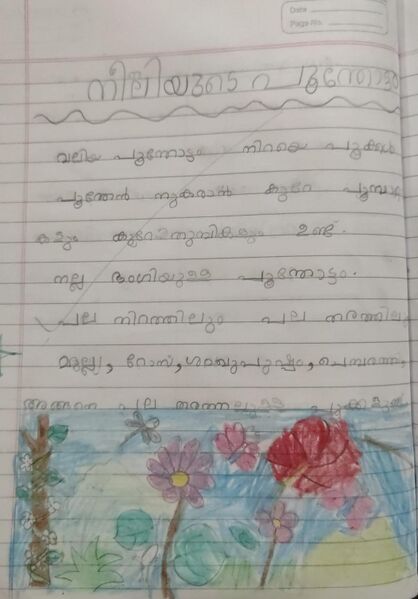 Date
Page No.
നീലിയുടെ പൂന്തോട്ടം
വലിയ പൂന്തോട്ടം നിറയെ പൂക്കൾ
പൂന്തേൻ നുകരാൻ കുറേ പൂമ്പാറ്റ
കളും കുറേ തുമ്പികളും ഉണ്ട്.
നല്ല ഭംഗിയുള്ള പൂന്തോട്ടം.
പല നിറത്തിലും പല തരത്തിലും
മുല്ല, റോസ്, ശംഖുപുഷ്പം, ചെമ്പരത്തി,
അങ്ങനെ പല തരത്തിലുള്ള പൂക്കളുണ്ട്